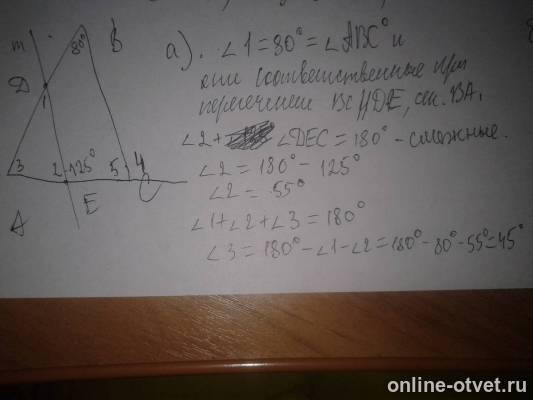 m
B
80°
D
1
3 2 125° 5 4
A E C
а). ∠1=80°=∠ABC° и
они соответственные при
пересечении BC||DE, сек. BA,
∠2+ ∠DEC=180° - смежные.
∠2=180°-125°
∠2=55°
∠1+∠2+∠3=180°
∠3=180°-∠1-∠2=180°-80°-55°=45°
online-otvet.ru